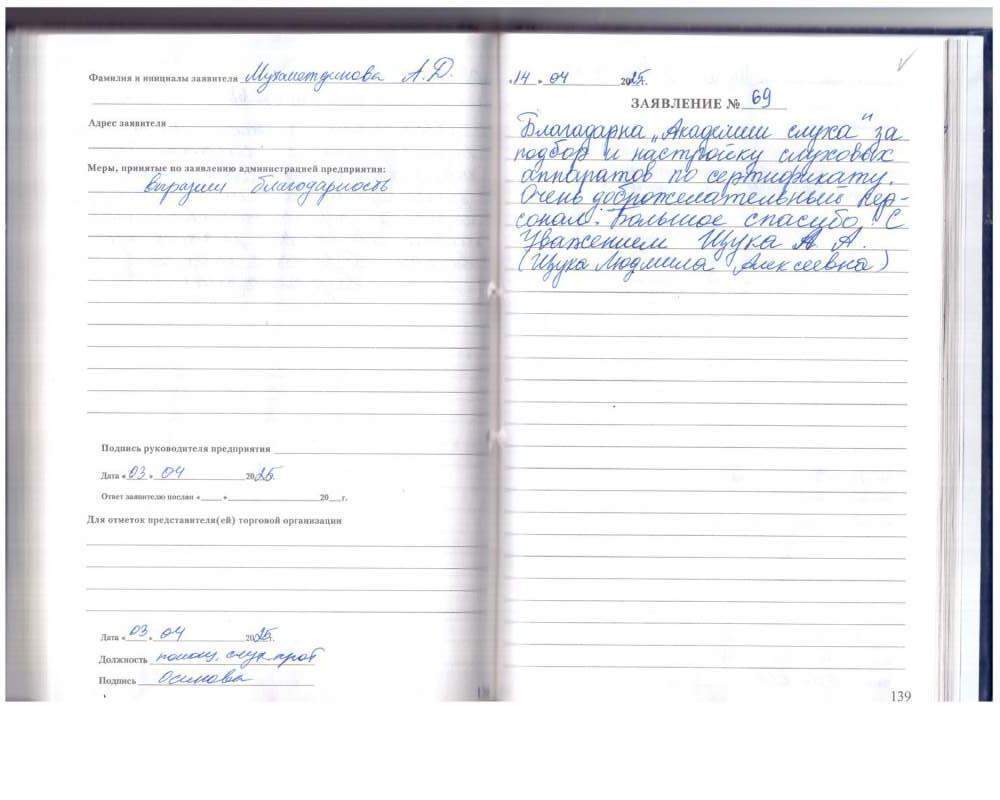 Фамилия и инициалы заявителя Мухаметдинова А.Д.
Адрес заявителя
Меры, принятые по заявлению администрацией предприятия:
выразили благодарность
Подпись руководителя предприятия
Дата «03» 04 2025г.
Ответ заявителю послан « » 20 г.
Для отметок представителя(ей) торговой организации
Дата «03» 04 2025г.
Должность помощ. слух.прот
Подпись Осипова
«14» 04 2025г.
ЗАЯВЛЕНИЕ № 69
Благодарна „Академии слуха" за
подбор и настройку слуховых
аппаратов по сертификату.
Очень доброжелательный пер-
сонал. Большое спасибо! С
Уважением Щука А А.
(Щука Людмила Алексеевна)
139